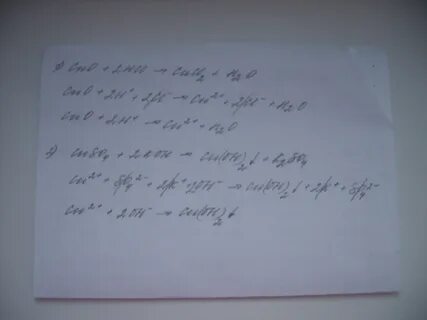 1) CuO + 2HCl → CuCl₂ + H₂O
CuO + 2H⁺ + 2Cl⁻ → Cu²⁺ + 2Cl⁻ + H₂O
CuO + 2H⁺ → Cu²⁺ + H₂O
2) CuSO₄ + 2KOH → Cu(OH)₂↓ + K₂SO₄
Cu²⁺ + SO₄²⁻ + 2K⁺ + 2OH⁻ → Cu(OH)₂↓ + 2K⁺ + SO₄²⁻
Cu²⁺ + 2OH⁻ → Cu(OH)₂↓